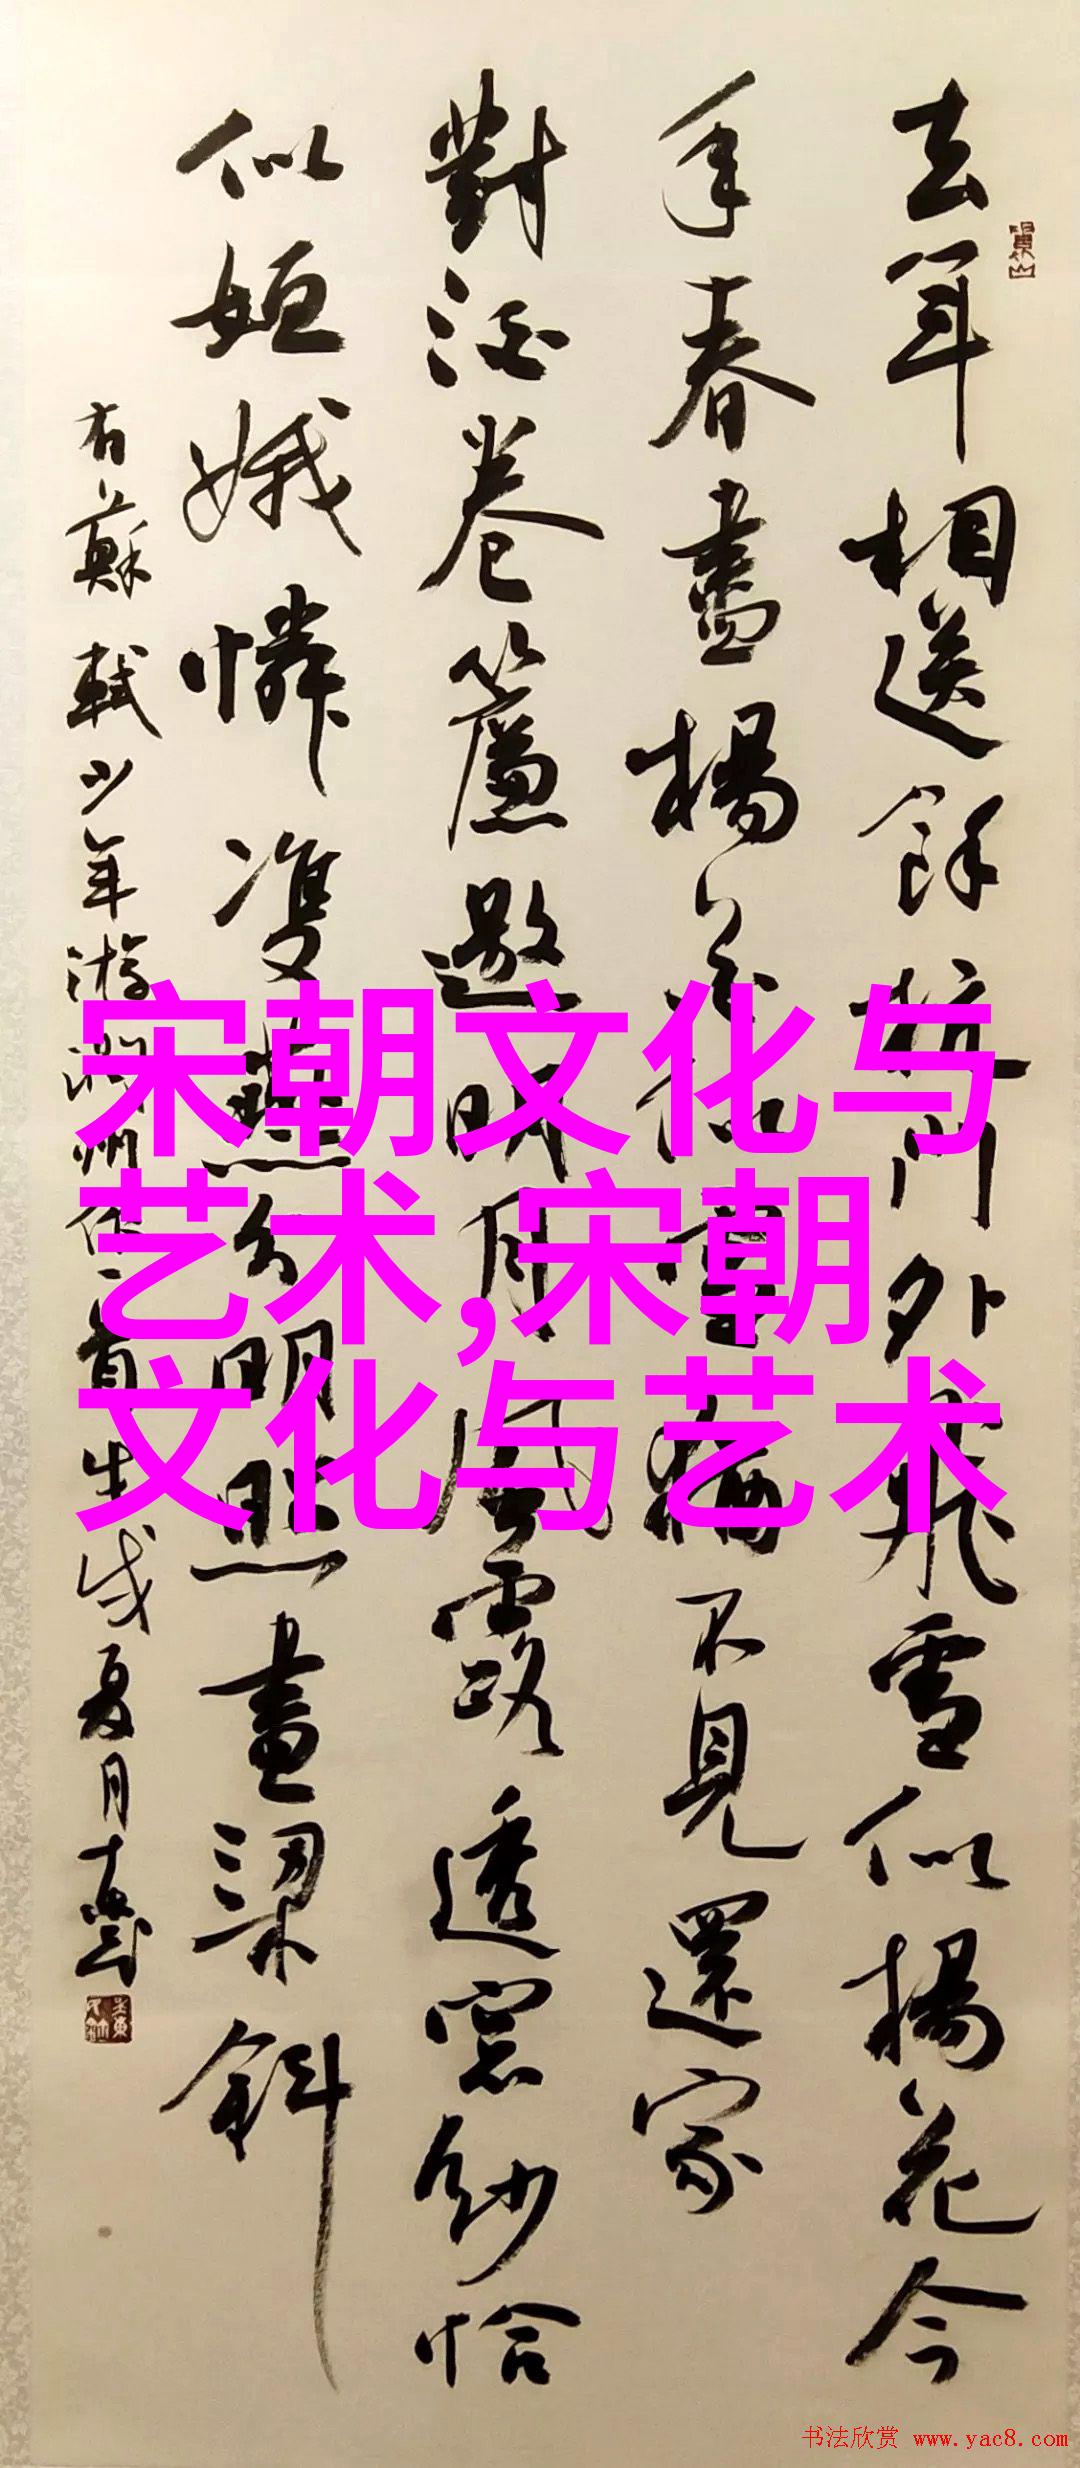 去年相送餘杭門外飛雪似楊花今
年春盡楊花似雪猶不見還家
對酒卷簾邀明月風露透窗紗恰
似姮娥憐雙燕分明照畫梁斜
右蘇軾少年游潤州作一首 夏月
宋朝文化与
艺术,宋朝
文化与艺术
书法欣赏 www.yac8.com